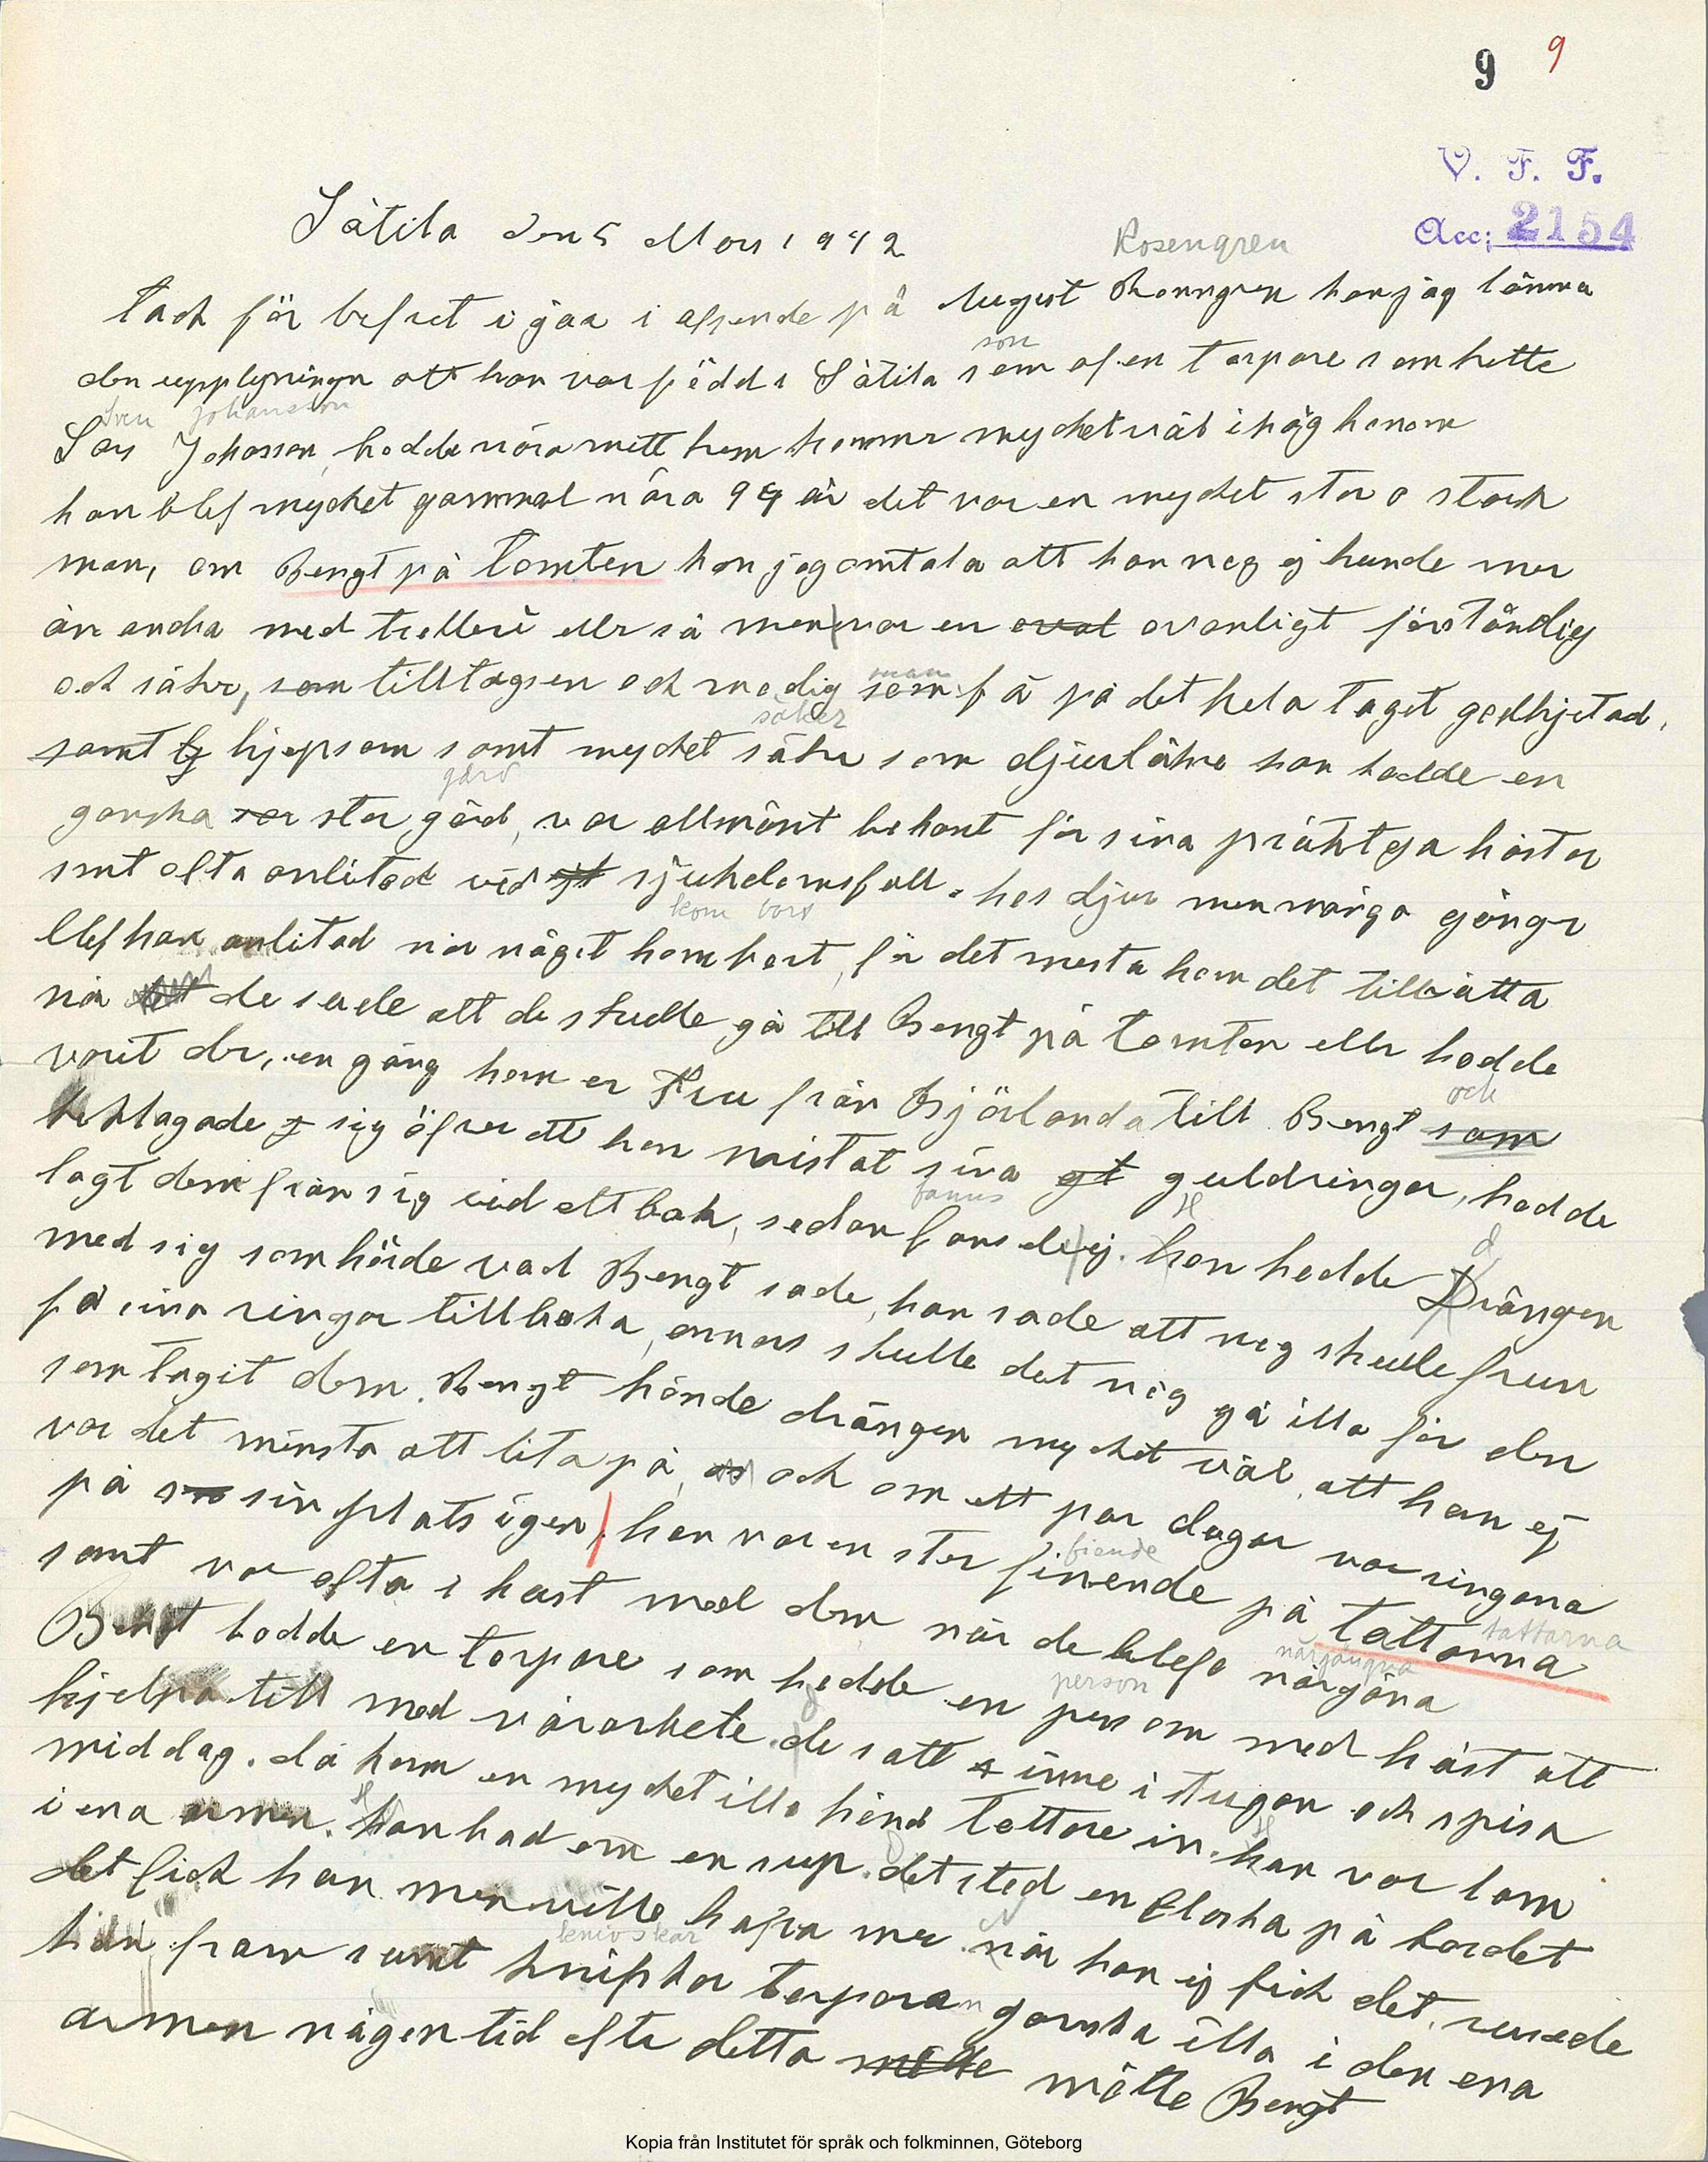 9 9
V. F. F.
Acc: 2154
Sätila den 5 Mars 1942
Rosengren
Tack för brefvet i gåa i afseende på August Rosengren kan jag lämna
son
den upplyningn att han var född i Sätila som af en torpare som hette
Sven Johansson
Johasson, hodde nära mitt hem kommr mycket väl ihåg honom
han blef mycket gammal nära 99 år det var en mycket stor o stark
man, om Bengt på Tomten kan jag omtala att han nog ej kunde mer
än andra med trolleri ellr så men var en ovanligt förståndig
man
och säker, som tilltagsen och modig som få på det hela taget godhjetad,
säker
samt hjepsam samt mycket säkr som djurläkre han hadde en
gård
ganska stor gård, var allmänt bekant för sina präktga hästar
smt ofta anlitad vid sjukdomsfall hos djur men många gånge
kom bort
blef han anlitad när något kom bort, för det mesta kom det tillrätta
när de sade att de skulle gå till Bengt på Tomten ellr hadde
och
varit dr, en gång kom en Fru från Björlanda till Bengt som
beklagade sig öfver att hon mistat sina guldringar, hadde
fanns H
lagt dem från sig vid ett bak, sedan fans de ej. hon hadde Drängen
d
med sig som hörde vad Bengt sade, han sade att nog skulle frun
få sina ringar tillbaka, annars skulle det nog gå illa för den
som tagit dem. Bengt kände drängen mycket väl, att han ej
var det minsta att lita på, och om ett par dagar var ringana
på sin plats igen, han var en stor finende på Tattarna
fiende tattarna
samt var ofta i kast med dem när de blefo närgåna
närgångna
Bengt hodde en torpare som hadde en person med häst att
person
hjelpa till med vårarbete. de satt inne i stugan och spisa
middag. då kom en mycket illa känd Tattare in. han var lam
i ena armen. han bad om en sup. det stod en flaska på bordet
det fick han men ville hafva mer. när han ej fick det, rusade
knivskar
han fram samt knifskar torparen ganska illa i den ena
armen någon tid eftr detta mötte Bengt
Kopia från Institutet för språk och folkminnen, Göteborg